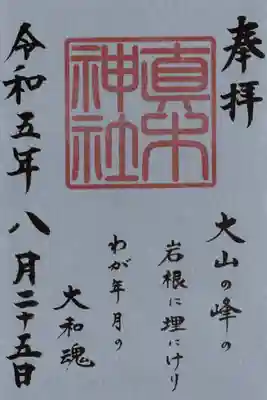 奉拝
真木
神社
大山の峰の
岩根に埋にけり
わが年月の
大和魂
令和五年 八月二十五日